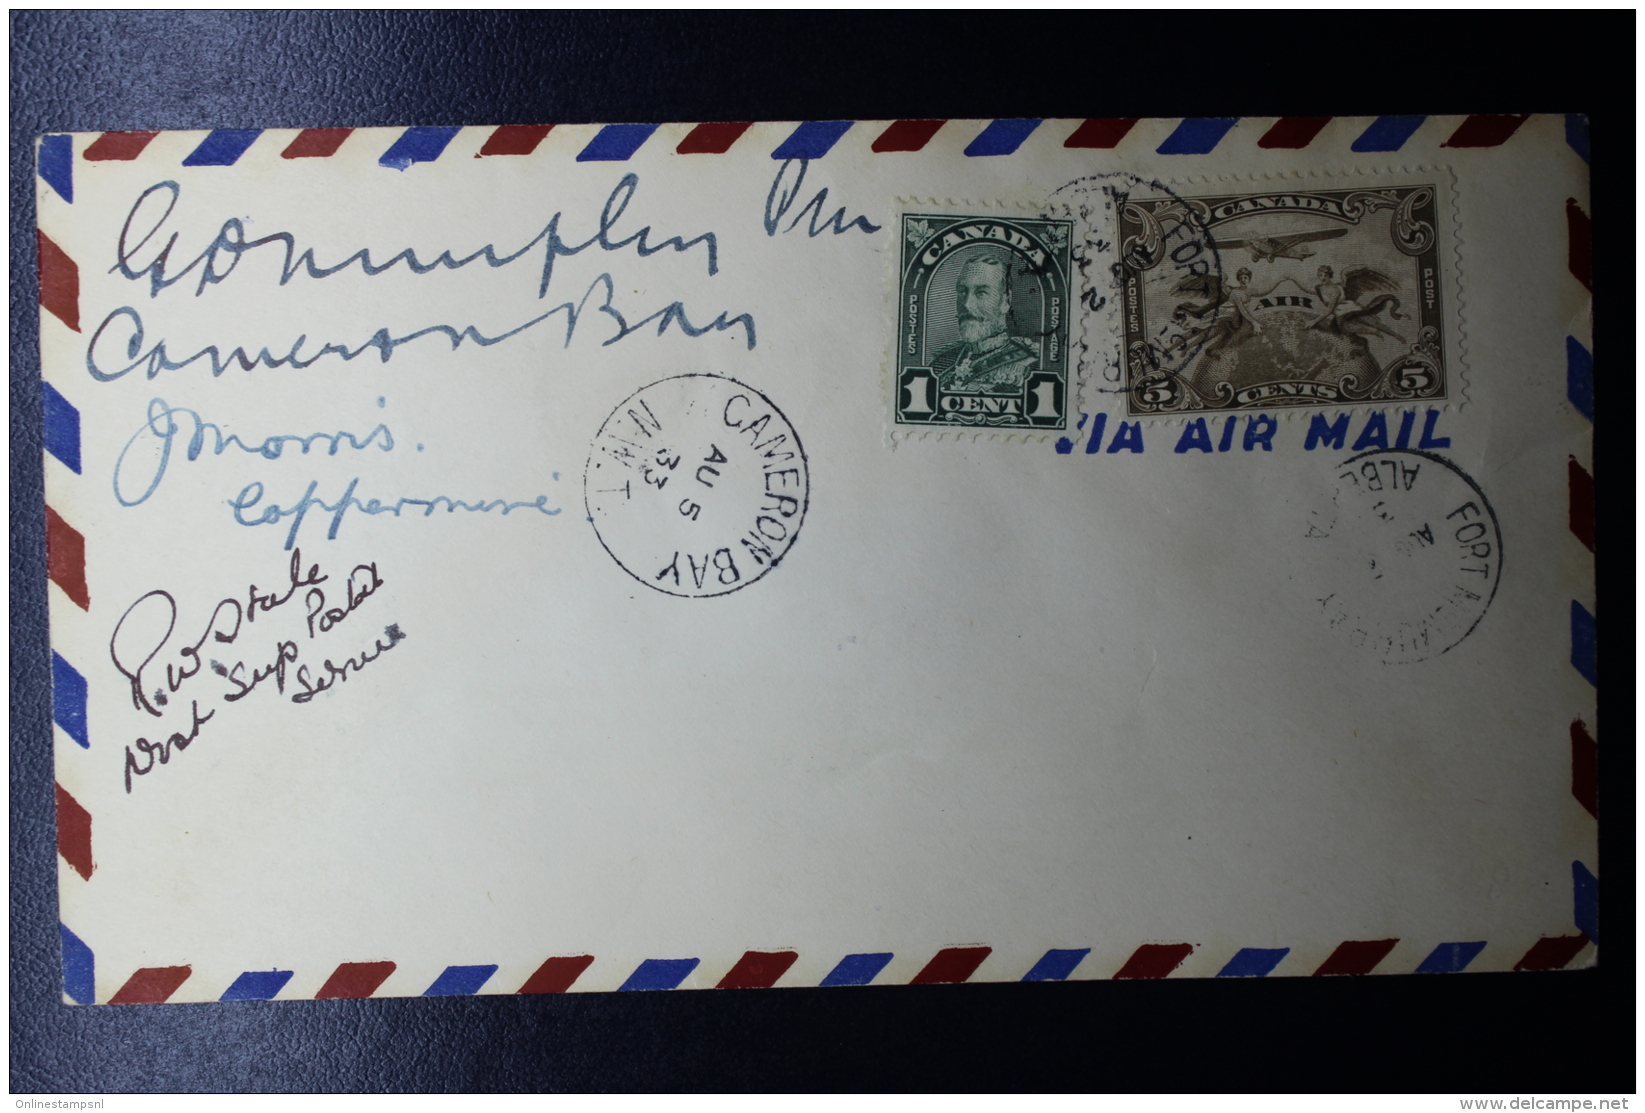 Cameron Bay
J Morris.
Coppermine.
R. W. Hale
Dist Sup Postal
Service
CANADA
POSTES
POSTAGE
1 CENT 1
CANADA
AIR
POSTES
POST
5 CENTS 5
FORT
VIA AIR MAIL
CAMERON BAY N.W.T
AU 5
33
FORT McMURRAY
ALBERTA
Onlinestampsnl
http://www.delcampe.net